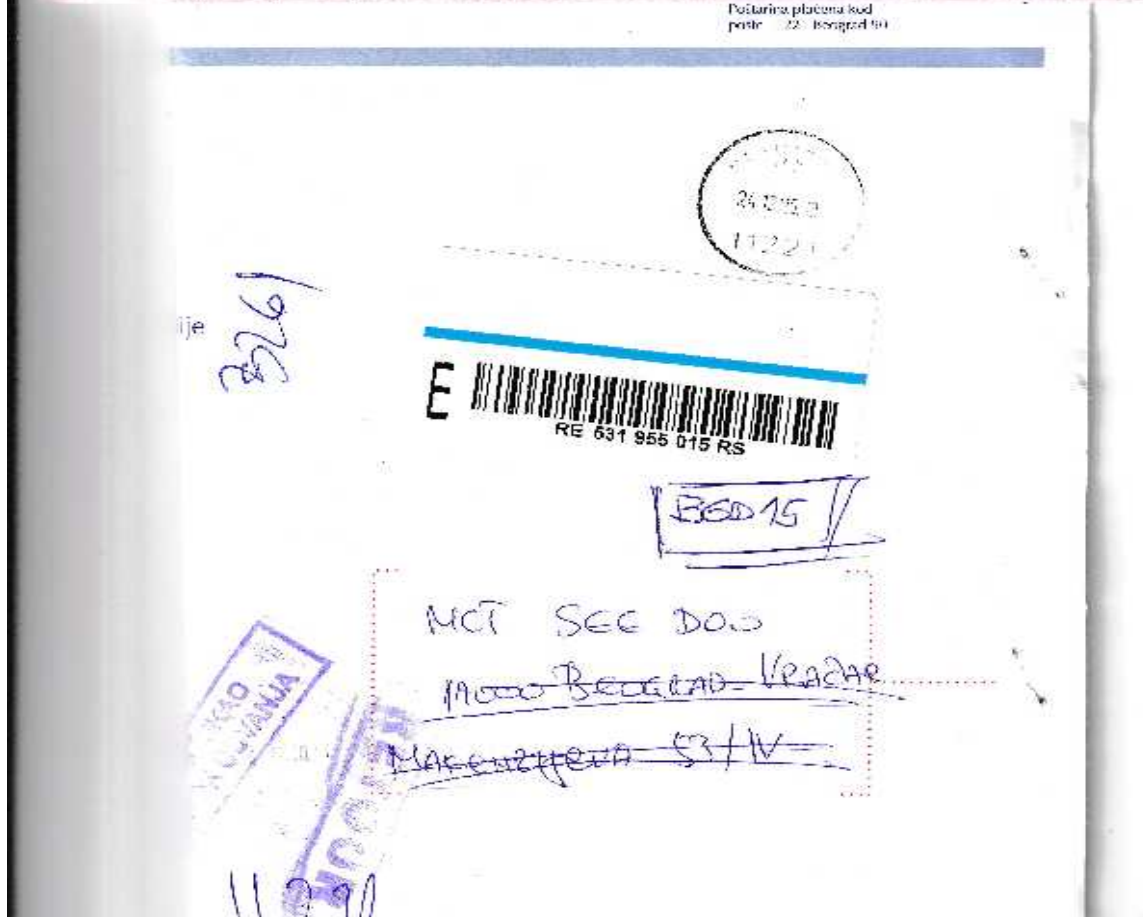 Poštarina plaćena kod
pošte 22 Beograd 90
24 12
11221
ije
3261
E
RE 531 955 015 RS
BGD 15
MCT SEE DOO
11000 BEOGRAD - VRAČAR
MAKENZIJEVA 53/IV
KAO
11221